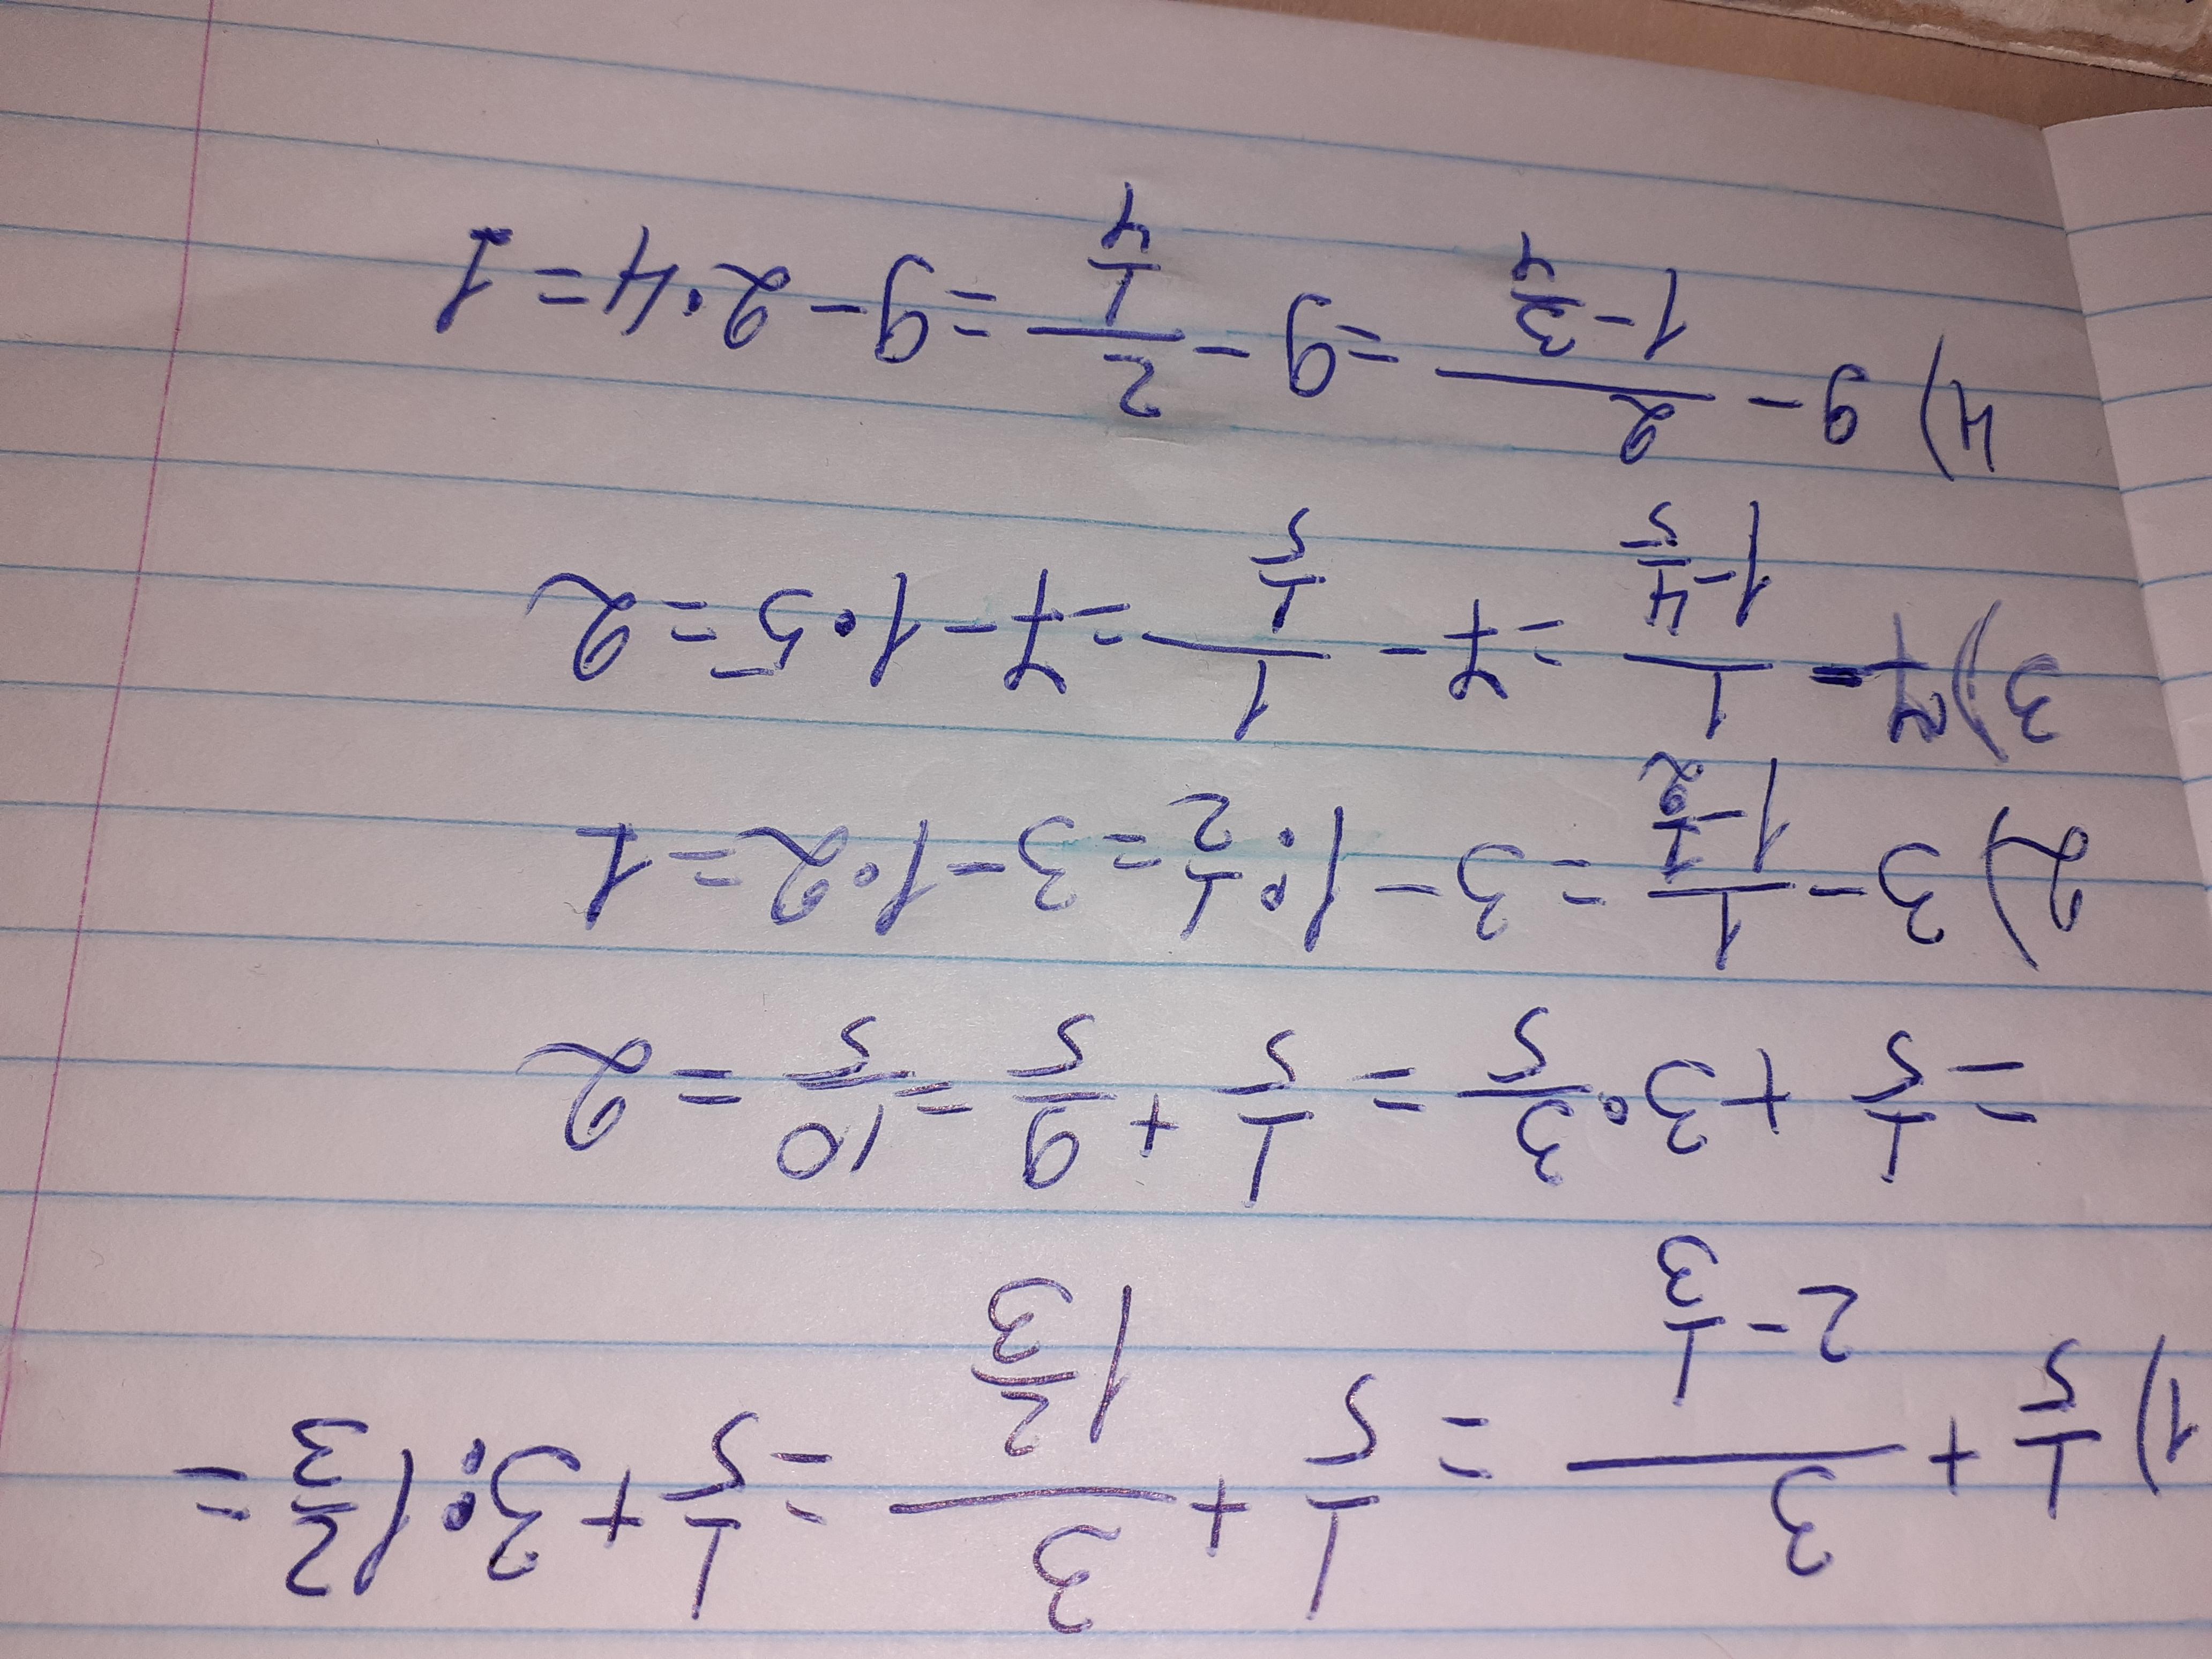 1) 1/5 + 3/(2 - 1/3) = 1/5 + 3/(1 2/3) = 1/5 + 3 : 1 2/3 =
= 1/5 + 3 · 3/5 = 1/5 + 9/5 = 10/5 = 2
2) 3 - 1/(1 - 1/2) = 3 - 1 : 1/2 = 3 - 1 · 2 = 1
3) 7 - 1/(1 - 4/5) = 7 - 1/(1/5) = 7 - 1 · 5 = 2
4) 9 - 2/(1 - 3/4) = 9 - 2/(1/4) = 9 - 2 · 4 = 1